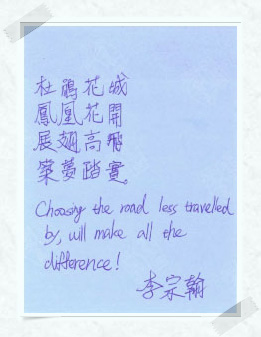 杜鵑花城
鳳凰花開
展翅高飛
築夢踏實。
Choosing the road less travelled
by, will make all the
difference!
李宗翰